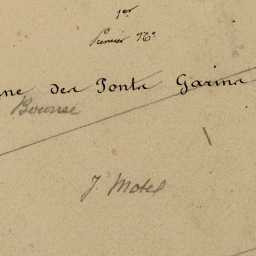 1er
Premier No
ne des Ponts Garins
Bourse
J. Motel